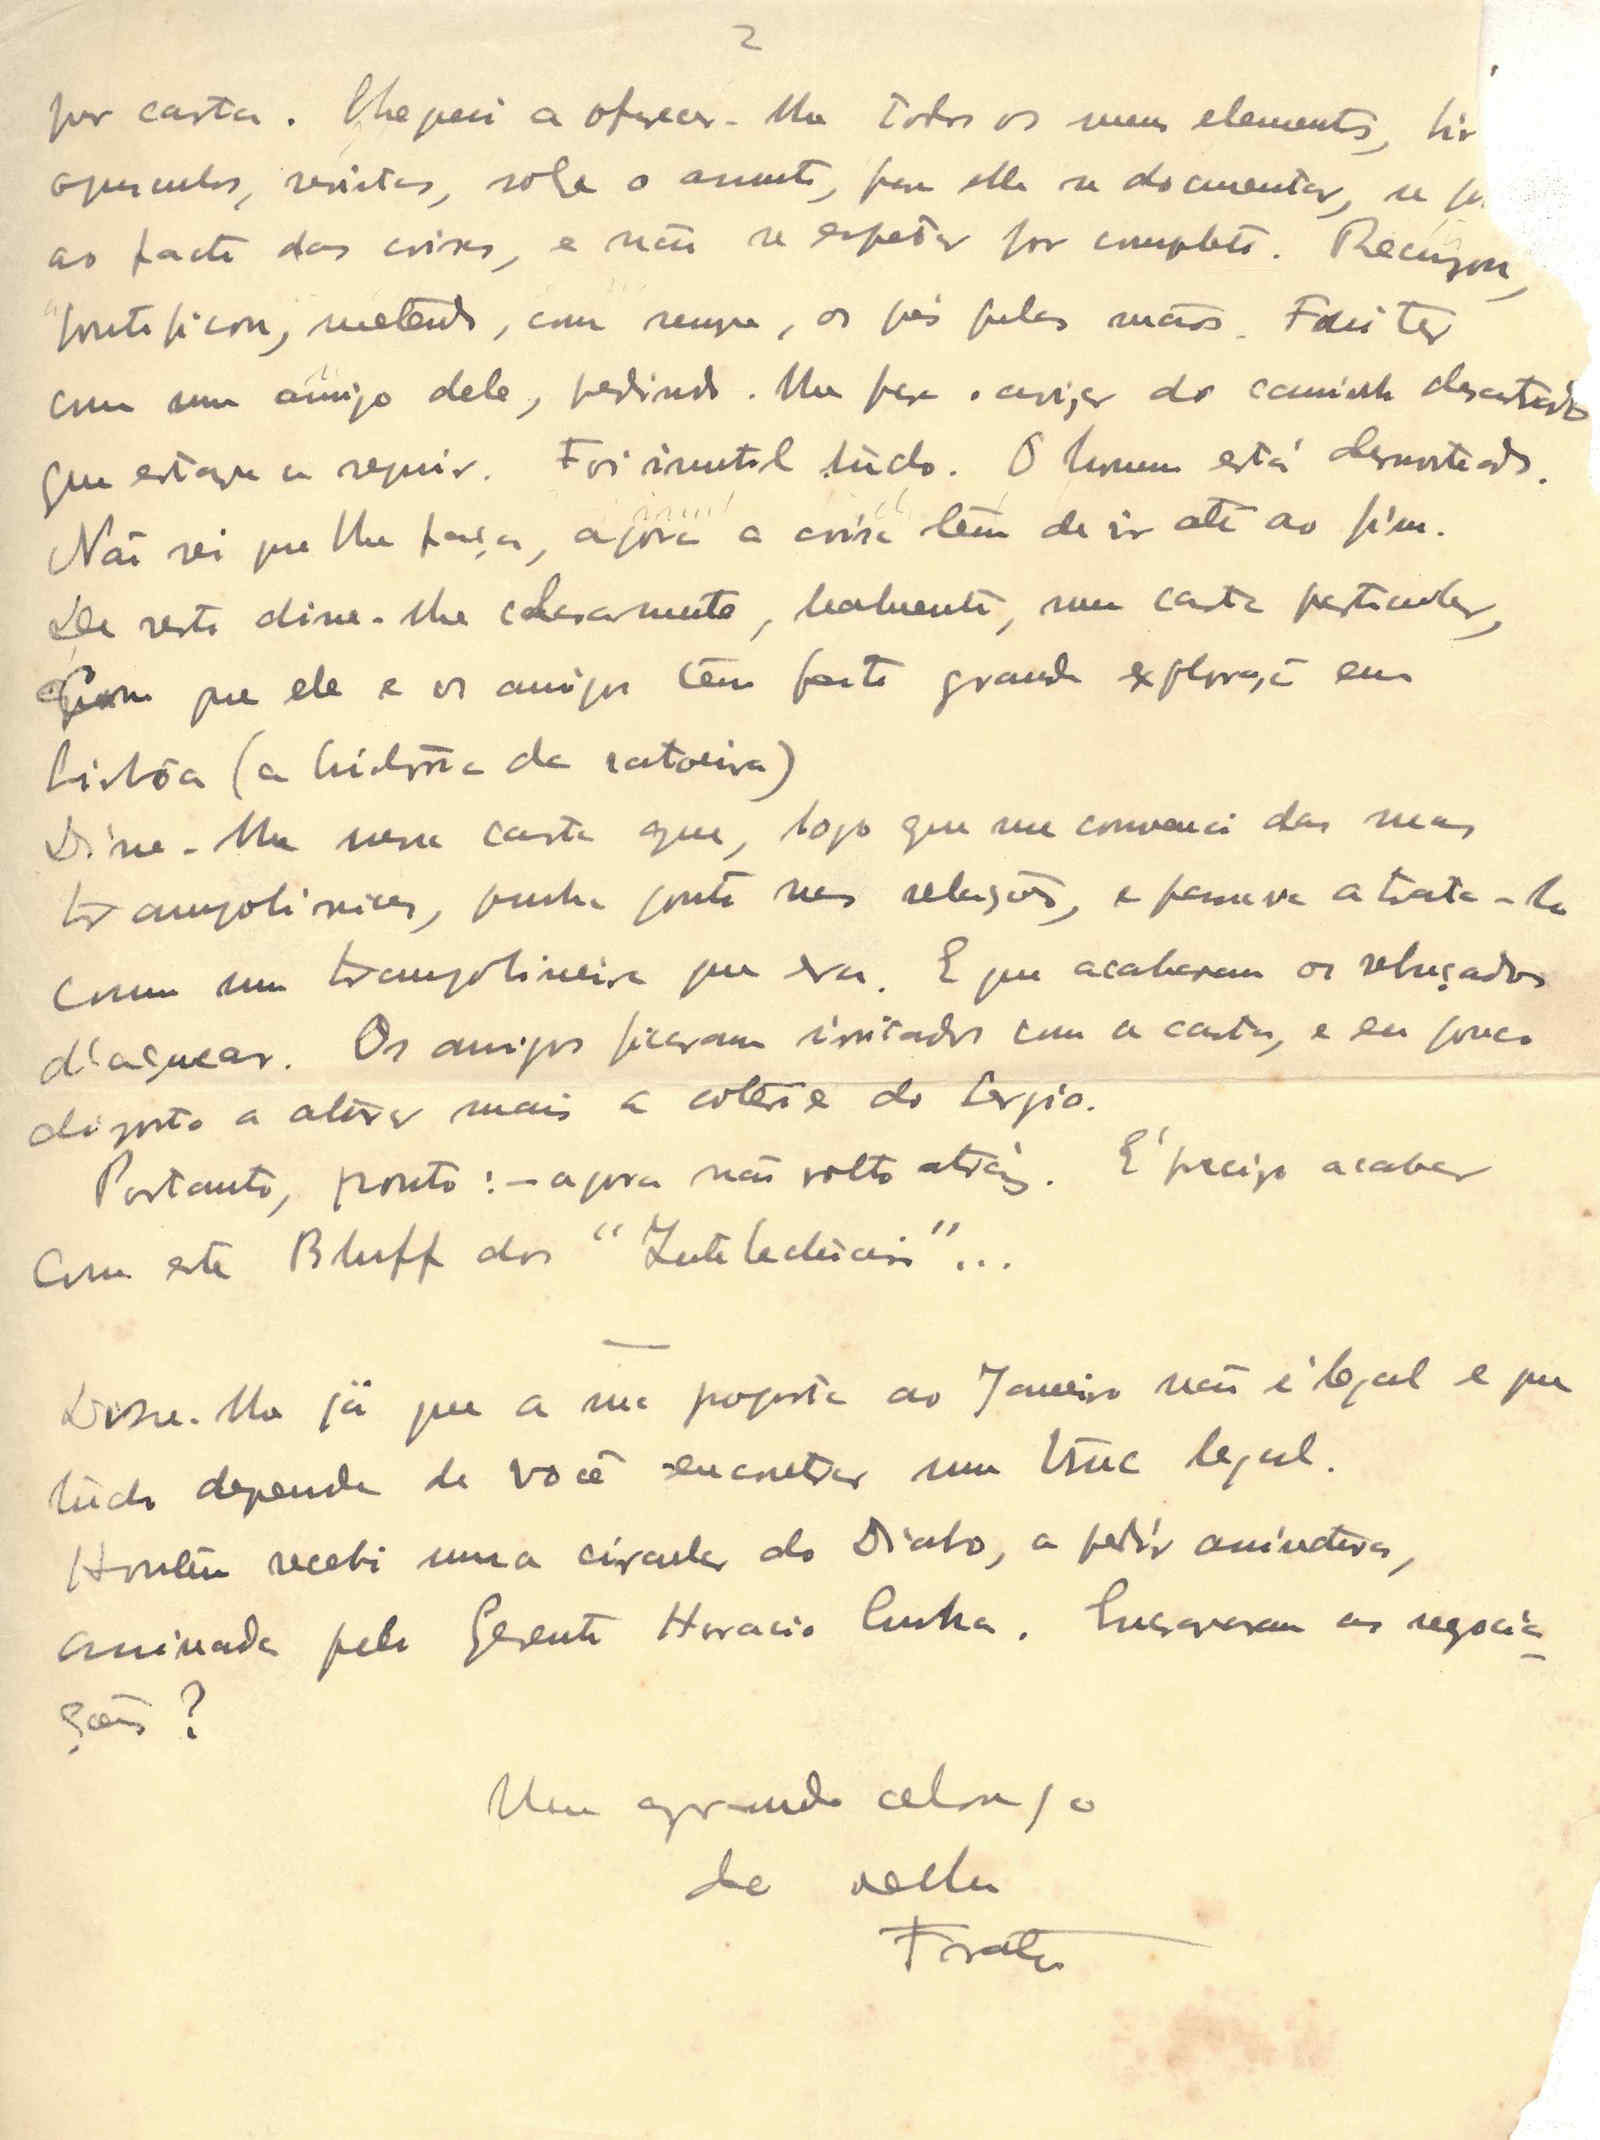 2
por carta. Cheguei a oferecer-lhe todos os meus elementos, liv
opusculos, revistas, sobre o assunto, para elle se documentar, se
ao facto das coisas, e não se espetar por completo. Recusou,
pontificou, metendo, como sempre, os pés pelas mãos. Fui ter
com um amigo dele, pedindo-lhe para o avisar do caminho desastrado
que estava a seguir. Foi inutil tùdo. O homem está desnorteado.
Não sei que lhe faça, agora a coisa têm de ir até ao fim.
De resto disse-lhe claramente, lealmente, numa carta particular,
com que ele e os amigos têm feito grande exploração em
Lisbôa (a história da ratoeira)
Disse-lhe nessa carta que, logo que me convenci das suas
trampolinices, punha ponto nas relações, e passava a trata-lo
como um trampolineiro que era. E que acabaram os rebuçados
d'açucar. Os amigos ficaram irritados com a carta, e eu pouco
disposto a aturar mais a coterie do Sergio.
Portanto, pronto: - agora não volto atrás. É preciso acabar
com este Bluff dos "Intelectúais"...
Disse-lhe já que a sua proposta ao Janeiro não é legal e que
tùdo depende de você encontrar um truc legal.
Hontem recebi uma circular do Diabo, a pedir assinaturas,
assinada pelo Gerente Horacio Cunha. Encravaram as negocia-
ções?
Um grande abraço
do velho